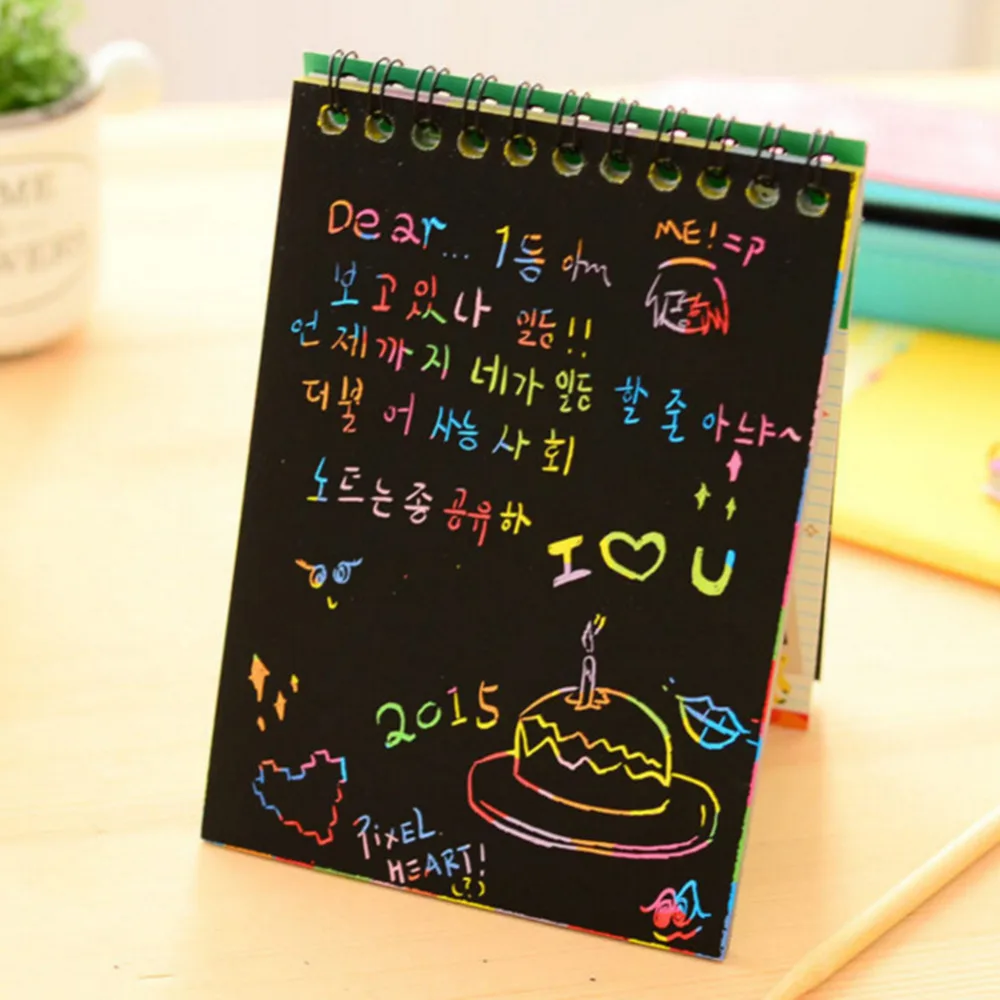 Dear... 1등 아
ME!=P
보고있나 일등!!
언제까지 네가 일등 할 줄 아느냐~
더불어 사능 사회
노트는 좀 공유하
I ♡ U
2015
PIXEL
HEART!
(?)
ME